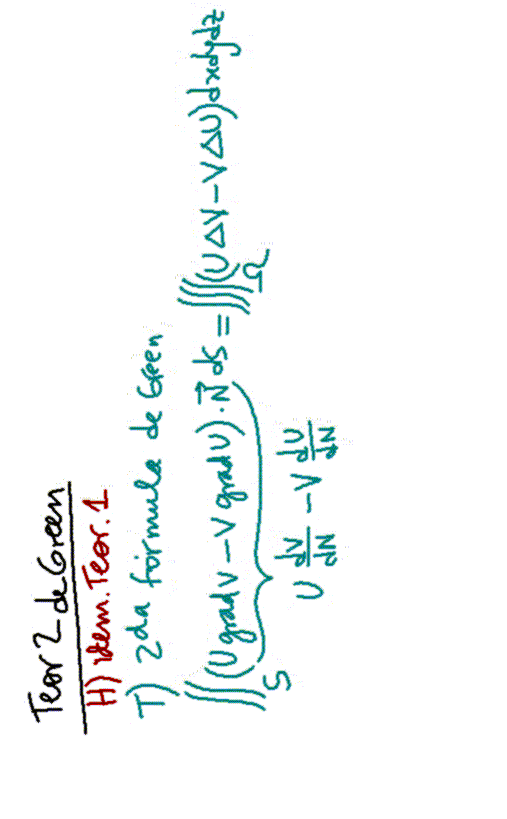 Teor 2 de Green
H) idem. Teor. 1
T) 2da fórmula de Green
∬_S (U grad V − V grad U) · N⃗ ds = ∭_Ω (U ΔV − V ΔU) dxdydz
U dV/dN − V dU/dN